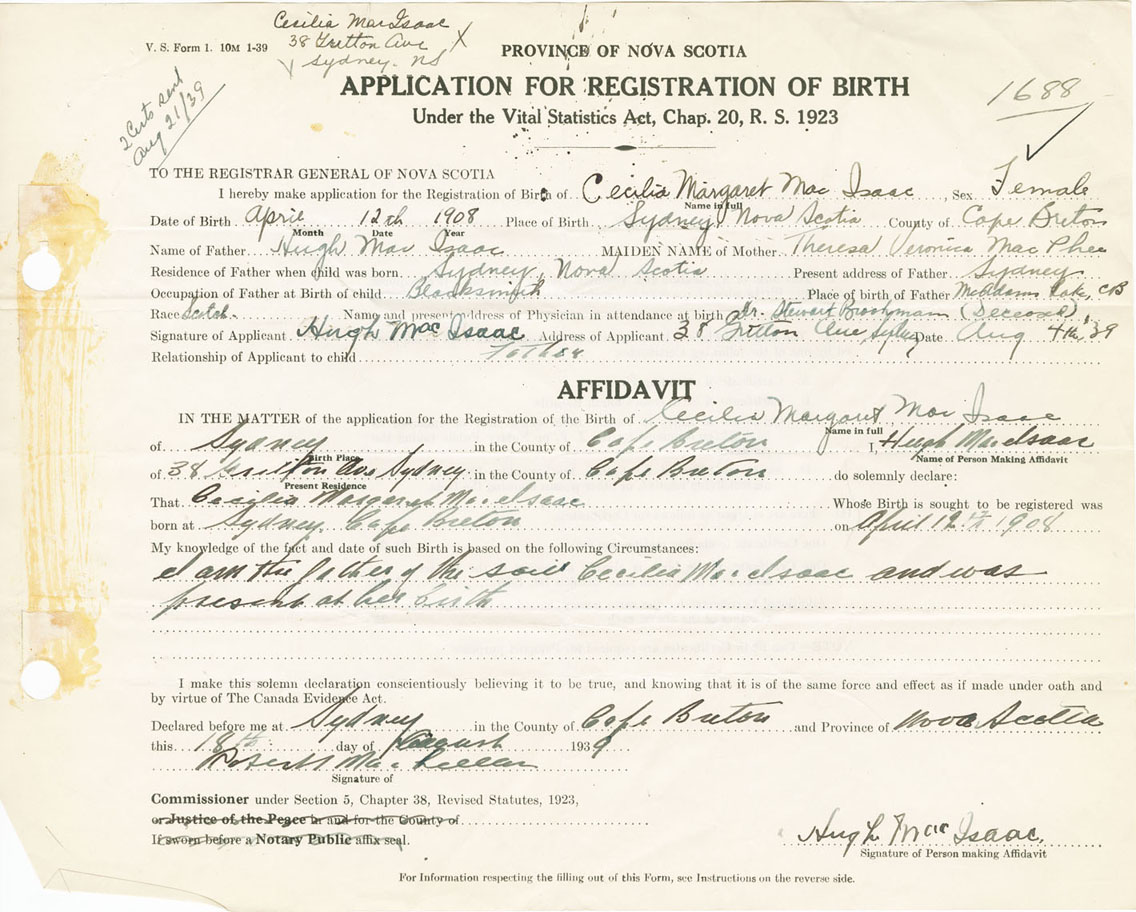 Cecilia MacIsaac
V. S. Form 1. 10M 1-39
38 Ave X
Sydney. NS
2 Certs sent
Aug 21/39
PROVINCE OF NOVA SCOTIA
APPLICATION FOR REGISTRATION OF BIRTH
1688
Under the Vital Statistics Act, Chap. 20, R. S. 1923
TO THE REGISTRAR GENERAL OF NOVA SCOTIA
I hereby make application for the Registration of Birth of Cecilia Margaret Mac Isaac, Sex Female
Name in full
Date of Birth April 12th 1908 Place of Birth Sydney Nova Scotia County of Cape Breton
Month Date Year
Name of Father Hugh Mac Isaac MAIDEN NAME of Mother Theresa Veronica Mac Phee
Residence of Father when child was born Sydney, Nova Scotia Present address of Father Sydney
Occupation of Father at Birth of child Blacksmith Place of birth of Father McAdams Lake, CB
Race Scotch Name and present address of Physician in attendance at birth Dr. Stewart (Deceased)
Signature of Applicant Hugh Mac Isaac Address of Applicant 38 Ave Sydney Date Aug 4th, 39
Relationship of Applicant to child Father
AFFIDAVIT
IN THE MATTER of the application for the Registration of the Birth of Cecilia Margaret Mac Isaac
Name in full
of Sydney in the County of Cape Breton I, Hugh MacIsaac
Birth Place Name of Person Making Affidavit
of 38 Ave Sydney in the County of Cape Breton do solemnly declare:
Present Residence
That Cecilia Margaret MacIsaac Whose Birth is sought to be registered was
born at Sydney Cape Breton on April 12th 1908
My knowledge of the fact and date of such Birth is based on the following Circumstances:
I am the father of the said Cecilia MacIsaac and was
present at her birth
I make this solemn declaration conscientiously believing it to be true, and knowing that it is of the same force and effect as if made under oath and
by virtue of The Canada Evidence Act.
Declared before me at Sydney in the County of Cape Breton and Province of Nova Scotia
this 18th day of August 1939
Signature of
Commissioner under Section 5, Chapter 38, Revised Statutes, 1923,
or Justice of the Peace in and for the County of
If sworn before a Notary Public affix seal.
Hugh MacIsaac.
Signature of Person making Affidavit
For Information respecting the filling out of this Form, see Instructions on the reverse side.